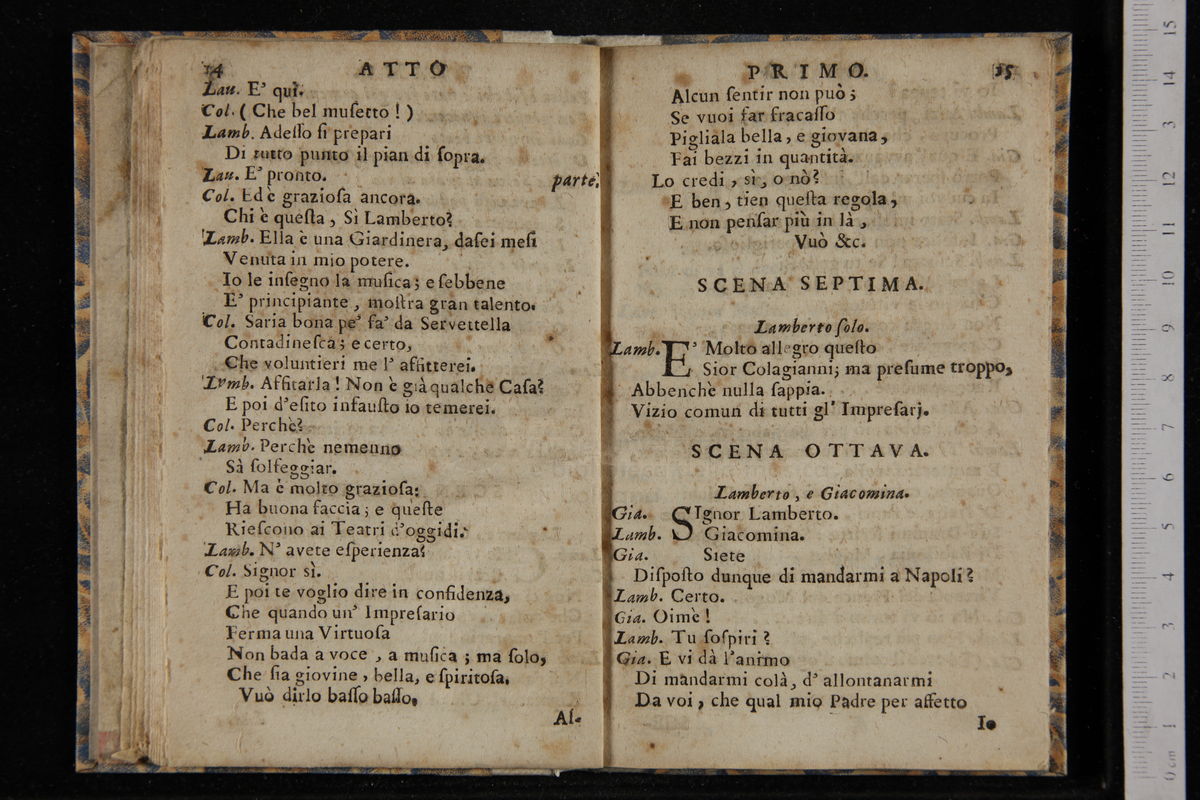 14 ATTO
Lau. E' quì.
Col. ( Che bel muſetto ! )
Lamb. Adeſſo ſi prepari
Di tutto punto il pian di ſopra.
Lau. E' pronto. parte.
Col. Ed è grazioſa ancora.
Chi è queſta, Sì Lamberto?
Lamb. Ella è una Giardinera, da ſei meſi
Venuta in mio potere.
Io le inſegno la muſica; e ſebbene
E' principiante, moſtra gran talento.
Col. Saria bona pe' fa' da Servettella
Contadineſca; e certo,
Che voluntieri me l' affitterei.
Lamb. Affitarla! Non è già qualche Caſa?
E poi d'eſito infauſto io temerei.
Col. Perchè?
Lamb. Perchè nemenno
Sà ſolfeggiar.
Col. Ma è molto grazioſa;
Ha buona faccia; e queſte
Rieſcono ai Teatri d'oggidì.
Lamb. N' avete eſperienza?
Col. Signor sì.
E poi te voglio dire in confidenza,
Che quando un' Impreſario
Ferma una Virtuoſa
Non bada a voce, a muſica; ma ſolo,
Che ſia giovine, bella, e ſpiritoſa.
Vuò dirlo baſſo baſſo.
Al-
PRIMO. 15
Alcun ſentir non può;
Se vuoi far fracaſſo
Pigliala bella, e giovana,
Fai bezzi in quantità.
Lo credi, sì, o nò?
E ben, tien queſta regola,
E non penſar più in là,
Vuò &c.
SCENA SEPTIMA.
Lamberto ſolo.
Lamb. E' Molto allegro queſto
Sior Colagianni; ma preſume troppo,
Abbenchè nulla ſappia.
Vizio comun di tutti gl' Impreſarj.
SCENA OTTAVA.
Lamberto, e Giacomina.
Gia. SIgnor Lamberto.
Lamb. Giacomina.
Gia. Siete
Diſpoſto dunque di mandarmi a Napoli?
Lamb. Certo.
Gia. Oimè!
Lamb. Tu ſoſpiri?
Gia. E vi dà l'animo
Di mandarmi colà, d' allontanarmi
Da voi, che qual mio Padre per affetto
Io